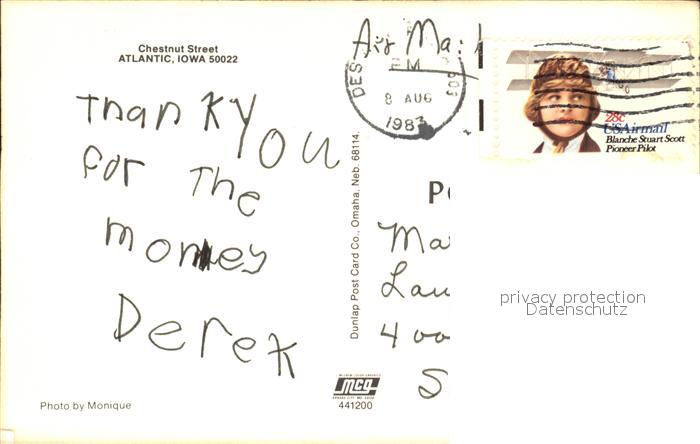 Chestnut Street
ATLANTIC, IOWA 50022
Thank you
for The
money
Derek
Photo by Monique
Dunlap Post Card Co., Omaha, Neb. 68114.
mcg
441200
Air Ma
DES
PM
8 AUG
1983
28c
USAirmail
Blanche Stuart Scott
Pioneer Pilot
privacy protection
Datenschutz